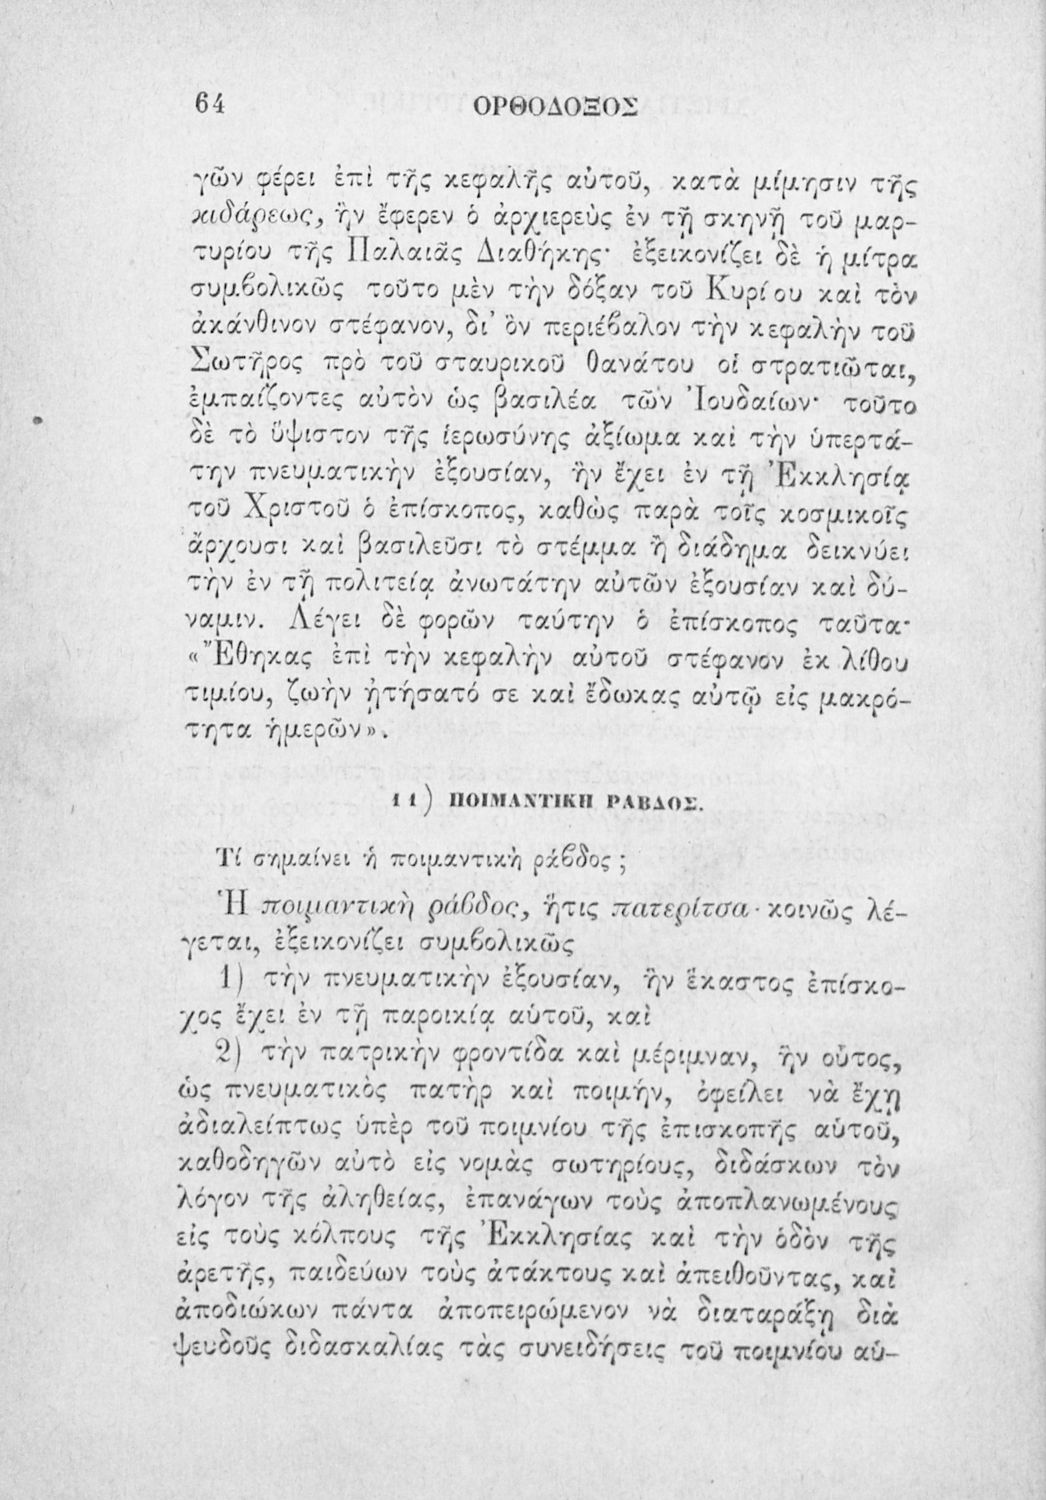 64 ΟΡΘΟΔΟΞΟΣ
γῶν φέρει ἐπὶ τῆς κεφαλῆς αὐτοῦ, κατὰ μίμησιν τῆς
κιδάρεως, ἣν ἔφερεν ὁ ἀρχιερεὺς ἐν τῇ σκηνῇ τοῦ μαρ-
τυρίου τῆς Παλαιᾶς Διαθήκης· ἐξεικονίζει δὲ ἡ μίτρα
συμβολικῶς τοῦτο μὲν τὴν δόξαν τοῦ Κυρίου καὶ τὸν
ἀκάνθινον στέφανον, δι' ὃν περιέβαλον τὴν κεφαλὴν τοῦ
Σωτῆρος πρὸ τοῦ σταυρικοῦ θανάτου οἱ στρατιῶται,
ἐμπαίζοντες αὐτὸν ὡς βασιλέα τῶν Ἰουδαίων· τοῦτο
δὲ τὸ ὕψιστον τῆς ἱερωσύνης ἀξίωμα καὶ τὴν ὑπερτά-
την πνευματικὴν ἐξουσίαν, ἣν ἔχει ἐν τῇ Ἐκκλησίᾳ
τοῦ Χριστοῦ ὁ ἐπίσκοπος, καθὼς παρὰ τοῖς κοσμικοῖς
ἄρχουσι καὶ βασιλεῦσι τὸ στέμμα ἢ διάδημα δεικνύει
τὴν ἐν τῇ πολιτείᾳ ἀνωτάτην αὐτῶν ἐξουσίαν καὶ δύ-
ναμιν. Λέγει δὲ φορῶν ταύτην ὁ ἐπίσκοπος ταῦτα·
«Ἔθηκας ἐπὶ τὴν κεφαλὴν αὐτοῦ στέφανον ἐκ λίθου
τιμίου, ζωὴν ᾐτήσατό σε καὶ ἔδωκας αὐτῷ εἰς μακρό-
τητα ἡμερῶν».
11) ΠΟΙΜΑΝΤΙΚΗ ΡΑΒΔΟΣ.
Τί σημαίνει ἡ ποιμαντικὴ ράβδος ;
Ἡ ποιμαντικὴ ράβδος, ἥτις πατερίτσα κοινῶς λέ-
γεται, ἐξεικονίζει συμβολικῶς
1) τὴν πνευματικὴν ἐξουσίαν, ἣν ἕκαστος ἐπίσκο-
χος ἔχει ἐν τῇ παροικίᾳ αὐτοῦ, καὶ
2) τὴν πατρικὴν φροντίδα καὶ μέριμναν, ἣν οὗτος,
ὡς πνευματικὸς πατὴρ καὶ ποιμήν, ὀφείλει νὰ ἔχῃ
ἀδιαλείπτως ὑπὲρ τοῦ ποιμνίου τῆς ἐπισκοπῆς αὐτοῦ,
καθοδηγῶν αὐτὸ εἰς νομὰς σωτηρίους, διδάσκων τὸν
λόγον τῆς ἀληθείας, ἐπανάγων τοὺς ἀποπλανωμένους
εἰς τοὺς κόλπους τῆς Ἐκκλησίας καὶ τὴν ὁδὸν τῆς
ἀρετῆς, παιδεύων τοὺς ἀτάκτους καὶ ἀπειθοῦντας, καὶ
ἀποδιώκων πάντα ἀποπειρώμενον νὰ διαταράξῃ διὰ
ψευδοῦς διδασκαλίας τὰς συνειδήσεις τοῦ ποιμνίου αὐ-